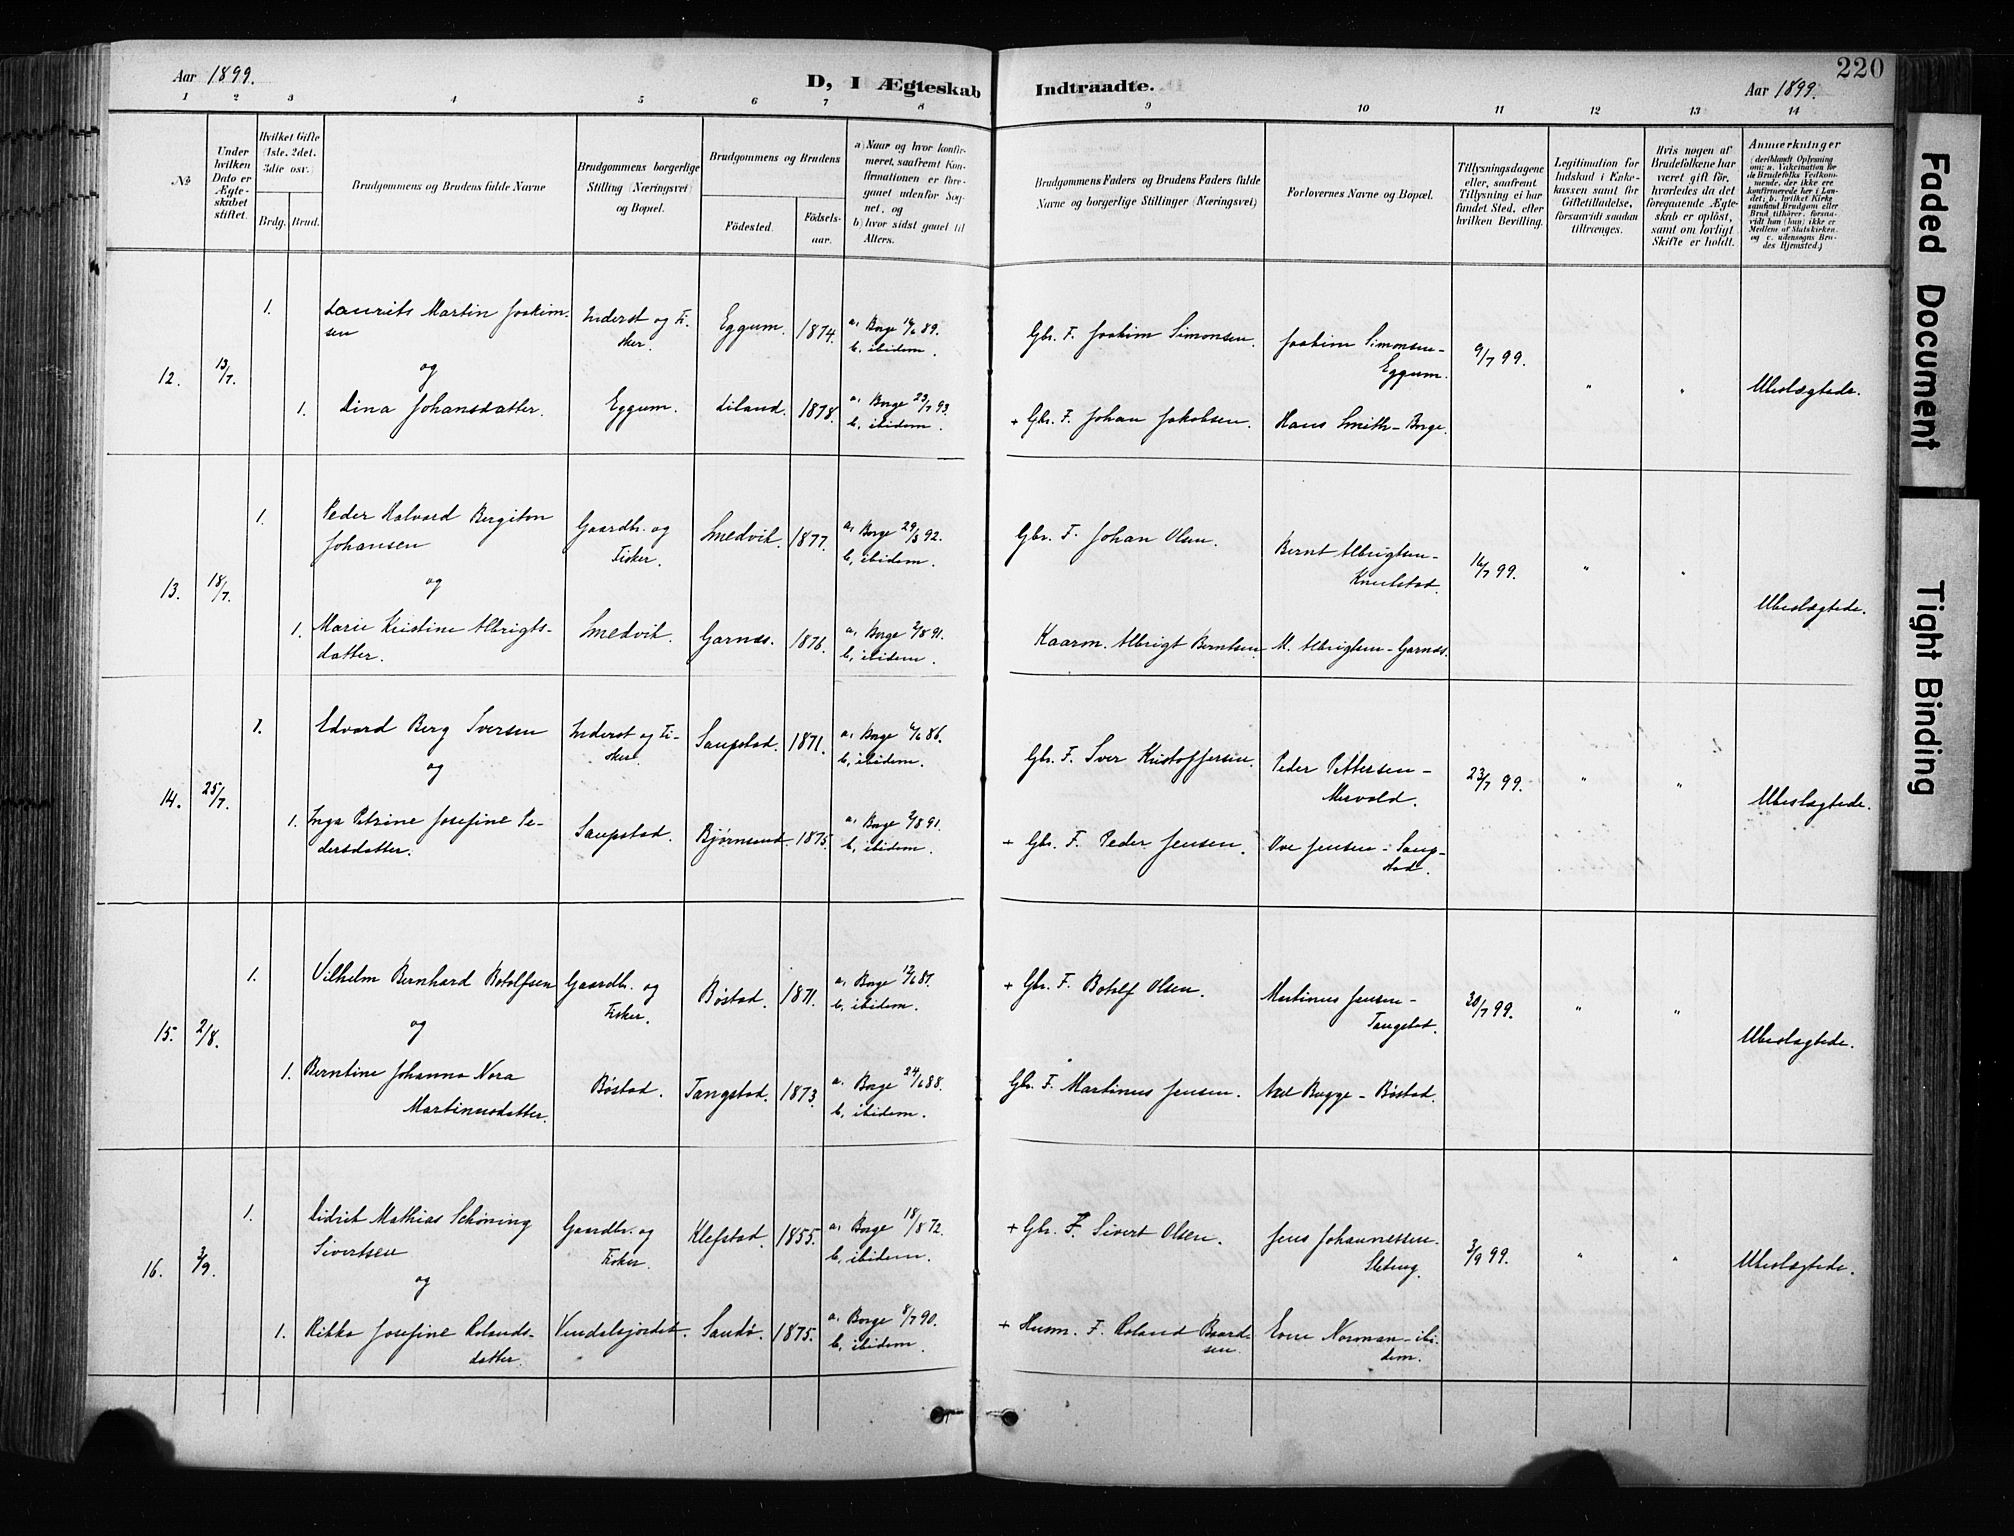 Aar 1899.
D, I Ægteskab Indtraadte.
Aar 1899.
220
1 2 3 4 5 6 7 8 9 10 11 12 13 14
No
Under hvilken Dato er Ægteskabet stiftet.
Hvilket Gifte (1ste, 2det, 3die osv.)
Brdg. Brud.
Brudgommens og Brudens fulde Navne
Brudgommens borgerlige Stilling (Næringsvei) og Bopæl.
Brudgommens og Brudens
Födested.
Födselsaar.
a) Naar og hvor konfirmeret, saafremt Konfirmationen er foregaaet udenfor Sognet, og
b) hvor sidst gaaet til Alters.
Brudgommens Faders og Brudens Faders fulde Navne og borgerlige Stillinger (Næringsvei)
Forlovernes Navne og Bopæl.
Tillysningsdagene eller, saafremt Tillysning ei har fundet Sted, efter hvilken Bevilling.
Legitimation for Indskud i Enkekassen samt for Giftetilladelse, forsaavidt saadan tiltrænges.
Hvis nogen af Brudefolkene har været gift før, hvorledes da det foregaaende Ægteskab er opløst, samt om lovligt Skifte er holdt.
Anmærkninger
(deriblandt Oplysning om: a. Vaccination for de Brudefolks Vedkommende, der ikke ere konfirmerede her i Landet; b. hvilket Kirkesamfund Brudgom eller Brud tilhører, forsaavidt han (hun) ikke er Medlem af Statskirken, og c. udensogns Brudes Hjemsted.)
12. 13/7. 1. Laurits Martin Joakimsen
Inderst og Fisker. Eggum. 1874. a, Borge 16/6 89. b, ibidem.
Gbr. F. Joakim Simonsen. Joakim Simonsen - Eggum. 9/7 99. " " Ubeslægtede.
og
1. Lina Johansdatter. Eggum. Liland. 1878. a, Borge 23/7 93. b, ibidem.
+ Gbr. F. Johan Jakobsen. Hans Smith - Borge.
13. 18/7. 1. Peder Halvard Bergiton Johansen
Gaardbr. og Fisker. Smedvik. 1877. a, Borge 29/5 92. b, ibidem.
Gbr. F. Johan Olsen. Bernt Albrigtsen - Knutstad. 16/7 99. " " Ubeslægtede.
og
1. Marie Kristine Albrigtsdatter. Smedvik. Garnæs. 1876. a, Borge 2/8 91. b, ibidem.
Kaarm. Albrigt Berntsen. M. Albrigtsen - Garnæs.
14. 25/7. 1. Edvard Berg Iversen
Inderst og Fisker. Saupstad. 1871. a, Borge 6/6 86. b, ibidem.
Gbr. F. Iver Kristoffersen. Peder Pettersen - Mervold. 23/7 99. " " Ubeslægtede.
og
1. Inga Petrine Josefine Pedersdatter. Saupstad. Bjørnsand. 1875. a, Borge 2/8 91. b, ibidem.
+ Gbr. F. Peder Jensen. Ove Jensen - Saupstad.
15. 2/8. 1. Vilhelm Bernhard Botolfsen
Gaardbr. og Fisker. Bøstad. 1871. a, Borge 12/6 87. b, ibidem.
+ Gbr. F. Botolf Olsen. Martinus Jensen - Tangstad. 30/7 99. " " Ubeslægtede.
og
1. Berntine Johanna Nora Martinusdatter. Bøstad. Tangstad. 1873. a, Borge 24/6 88. b, ibidem.
Gbr. F. Martinus Jensen. Axel Bugge - Bøstad.
16. 3/9. 1. Didrik Mathias Schöning Sivertsen
Gaardbr. og Fisker. Klefstad. 1855. a, Borge 18/8 72. b, ibidem.
+ Gbr. F. Sivert Olsen. Jens Johannessen. 3/9 99. " " Ubeslægtede.
og
1. Rikka Josefine Rolandsdatter. Vendalsjordet. Sandö. 1875. a, Borge 8/7 90. b, ibidem.
+ Husm. F. Roland Baardsen. Norman - ibidem.
Faded Document
Tight Binding